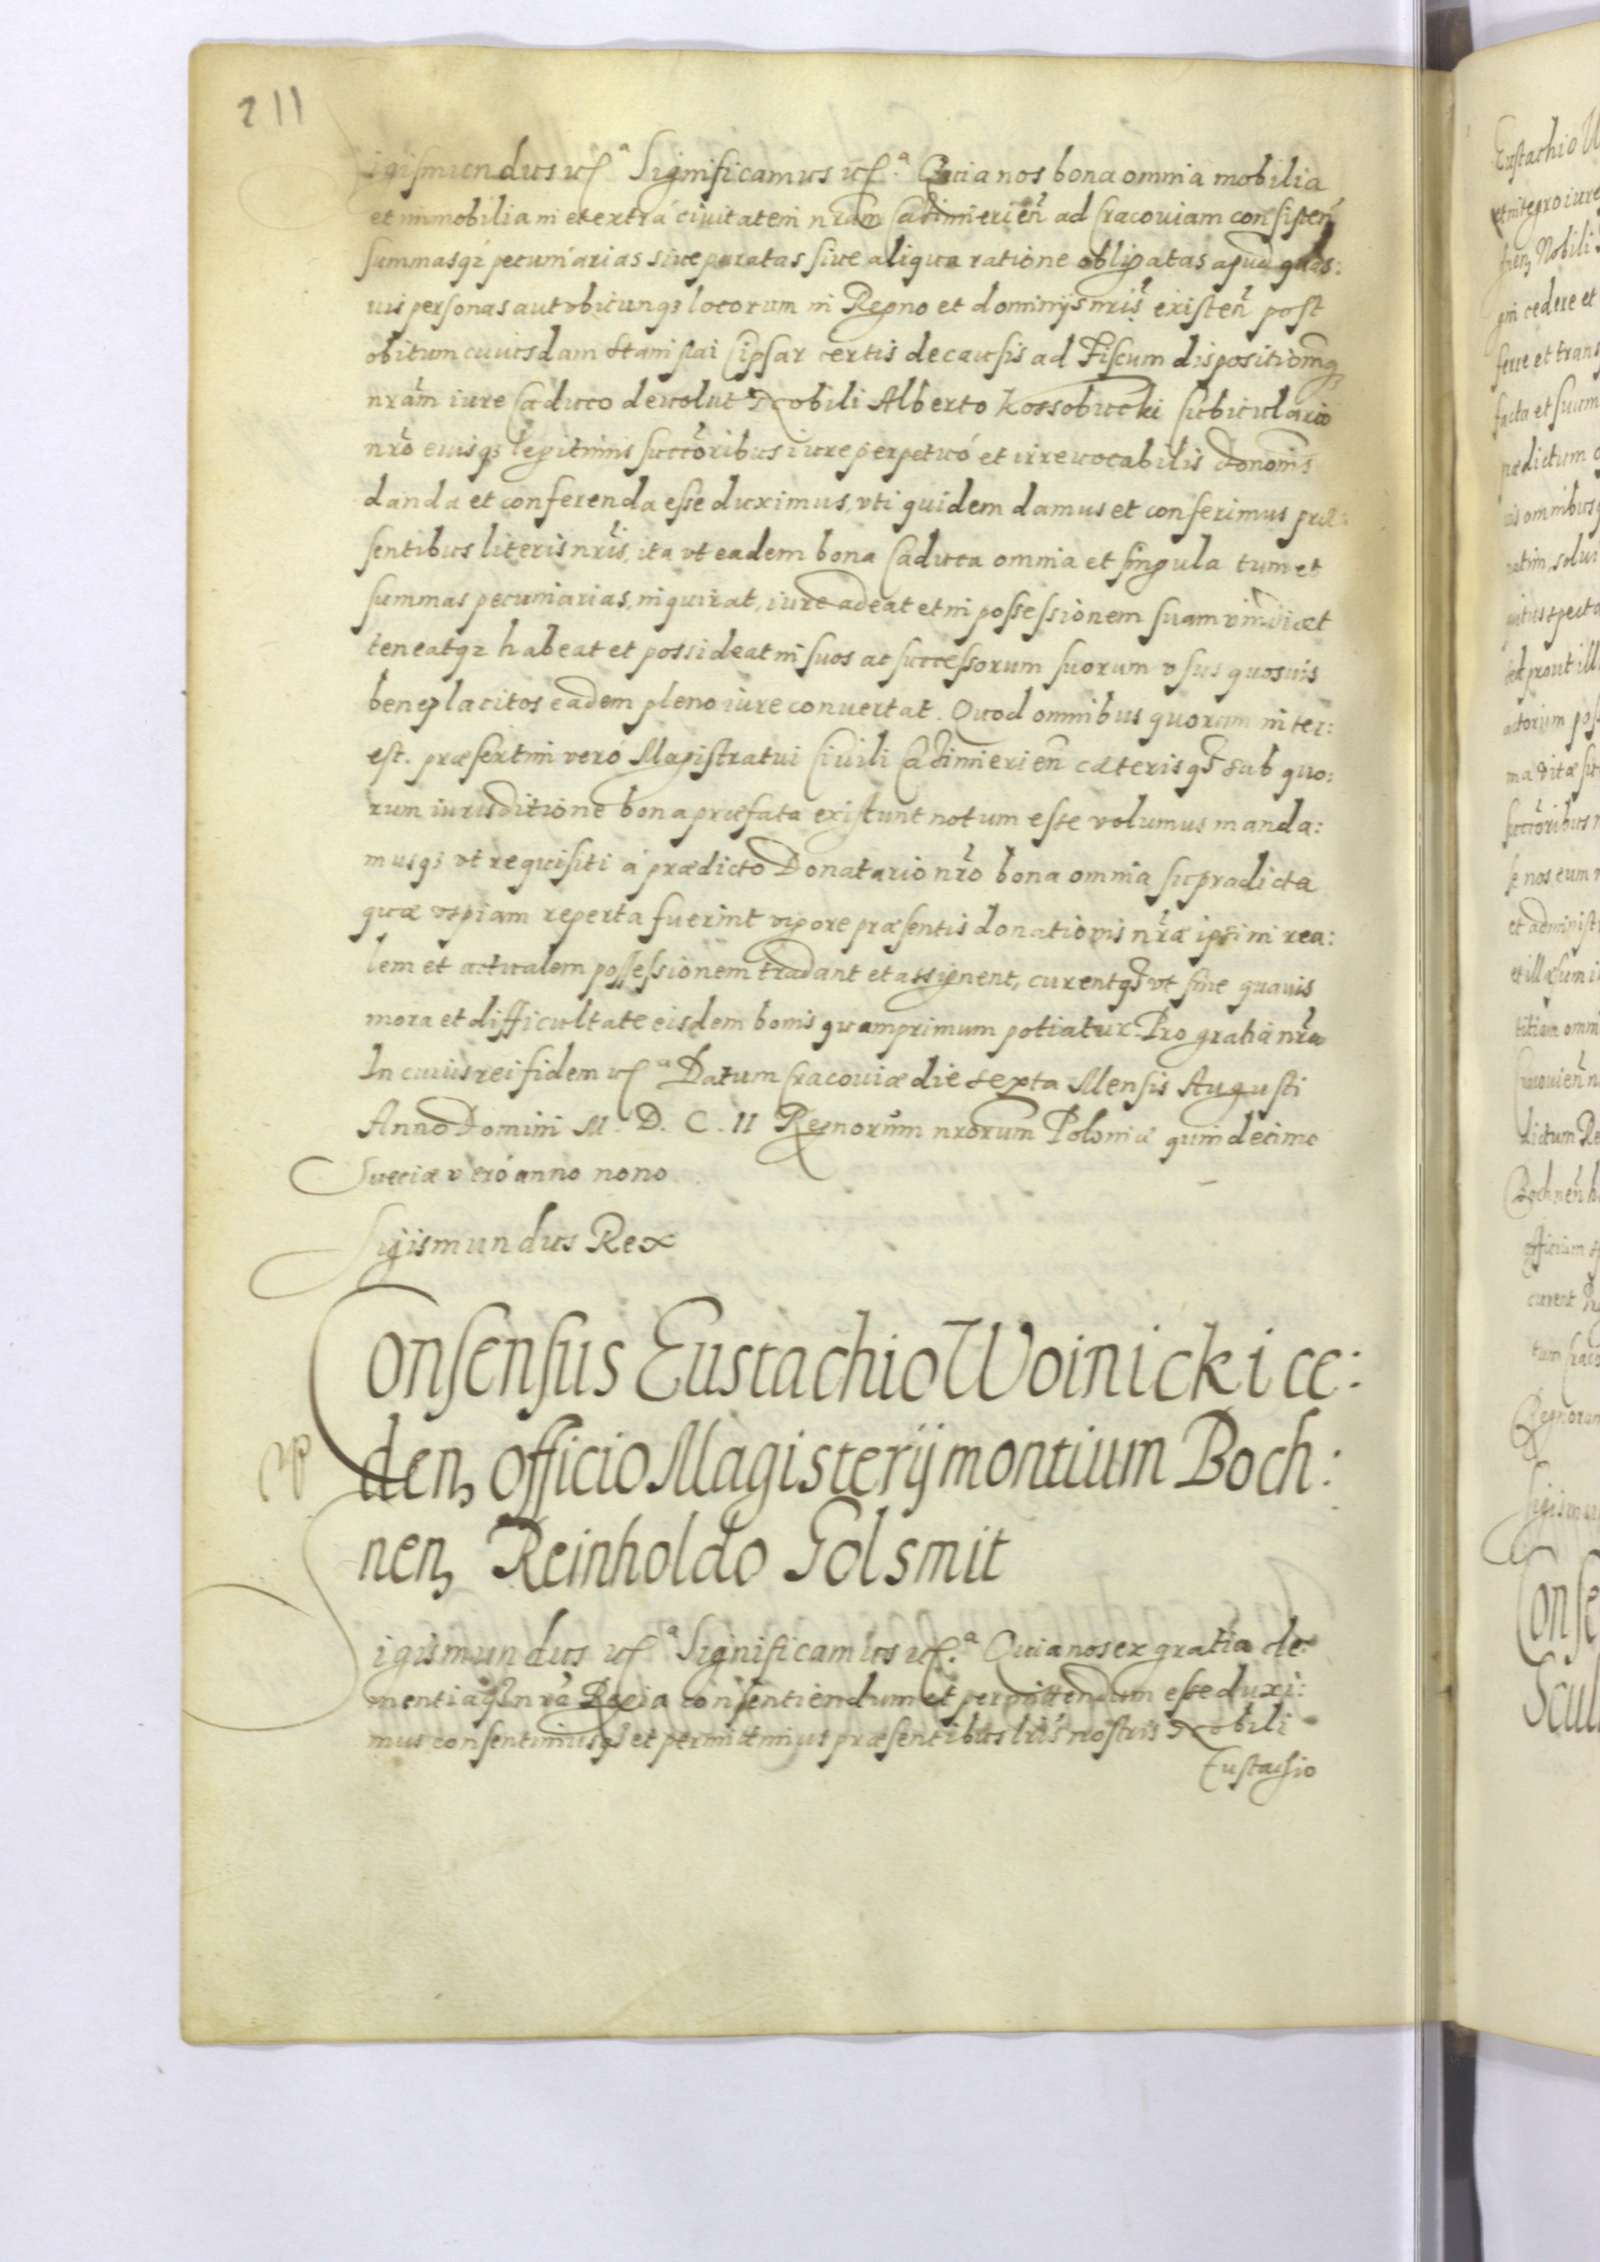 211
Sigismundus etc.ª Significamus etc.ª Quia nos bona omnia mobilia
et immobilia in et extra ciuitatem nram Casimierien̄ ad Cracouiam consisten̄
summasq; pecuniarias siue paratas siue aliqua ratione obligatas apud quas:
uis personas aut vbicunq; locorum in Regno et dominijs nris existen̄ post
obitum cuiusdam Stanislai Cipsar certis de causis ad Fiscum dispositionēq;
nram iure Caduco deuolut Nobili Alberto Kossobucki Cubiculario
nro eiusq; legitimis succoribus iure perpetuó et irreuocabilis dononis
danda et conferenda esse duximus, vti quidem damus et conferimus præ:
sentibus literis nris, ita vt eadem bona Caduca omnia et singula tum et
summas pecuniarias, inquirat, iure adeat et in possessionem suam vindicet
teneatq; habeat et possideat in suos ac successorum suorum vsus quosuis
beneplacitos eadem pleno iure conuertat. Quod omnibus quorum inter:
est. præsertim veró Magistratui Ciuili Casimierien̄ cæterisq; sub quo:
rum iurisditione bona præfata existunt notum esse volumus manda:
musq; vt requisiti á prædicto Donatario nro bona omnia supradicta
quæ vspiam reperta fuerint vigore præsentis donationis nræ ipsi in rea:
lem et actualem possessionem tradant et assignent, curentq; vt sine quauis
mora et difficultate eisdem bonis quamprimum potiatur. Pro gratia nra
In cuius rei fidem etc.ª Datum Cracouiæ die sexta Mensis Augusti
Anno Domini M. D. C. II Regnorum nrorum Poloniæ quindecimo
Sueciæ veró anno nono
Sigismundus Rex
Consensus Eustachio Woinicki ce:
den, officio Magisterij montium Boch:
nen, Reinholdo Golsmit
Sigismundus etc.ª Significamus etc.ª Quia nos ex gratia cle:
mentiaq; nra Regia consentiendum et permittendum esse duxi:
mus consentimusq; et permittimus præsentibus lris nostris Nobili
Eustachio